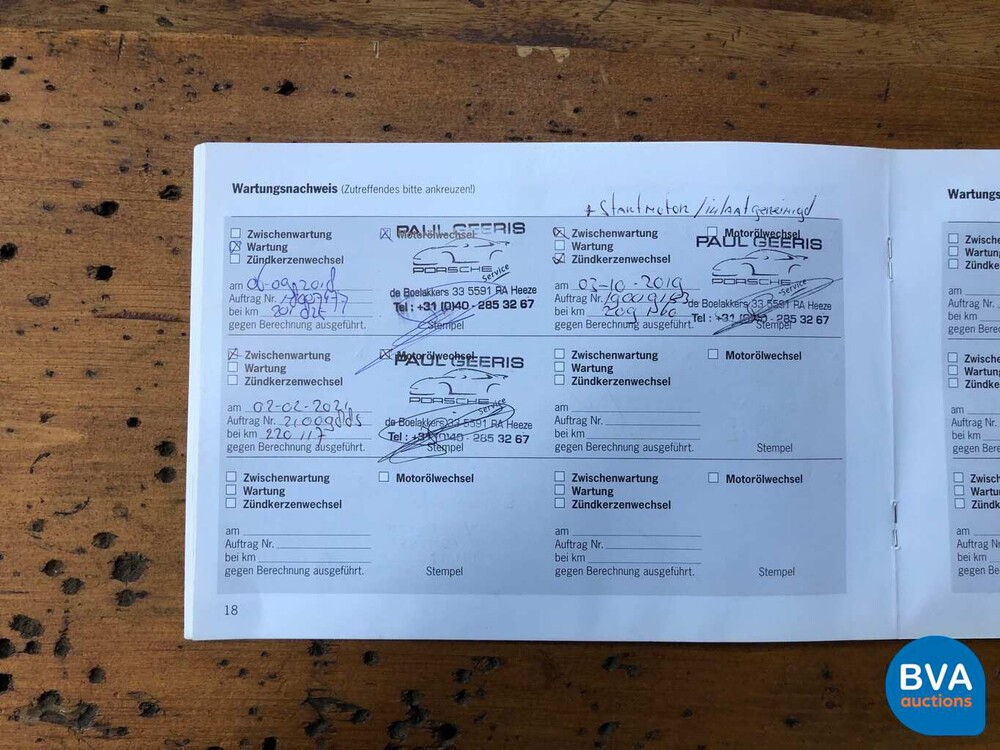 Wartungsnachweis (Zutreffendes bitte ankreuzen!)
+ Startmotor / inlaat gereinigd
Zwischenwartung
Wartung
Zündkerzenwechsel
Motorölwechsel
am
Auftrag Nr.
bei km
gegen Berechnung ausgeführt.
PAUL GEERIS
PORSCHE service
de Boelakkers 33 5591 RA Heeze
Tel : +31 (0)40 - 285 32 67
Stempel
Zwischenwartung
Wartung
Zündkerzenwechsel
Motorölwechsel
am 03-10-2019
Auftrag Nr.
bei km
gegen Berechnung ausgeführt.
PAUL GEERIS
PORSCHE service
de Boelakkers 33 5591 RA Heeze
Tel : +31 (0)40 - 285 32 67
Stempel
Zwischenwartung
Wartung
Zündkerzenwechsel
Motorölwechsel
am 02-02-2021
Auftrag Nr.
bei km 220 117
gegen Berechnung ausgeführt.
PAUL GEERIS
PORSCHE service
de Boelakkers 33 5591 RA Heeze
Tel : +31 (0)40 - 285 32 67
Stempel
Zwischenwartung
Wartung
Zündkerzenwechsel
Motorölwechsel
am
Auftrag Nr.
bei km
gegen Berechnung ausgeführt.
Stempel
Zwischenwartung
Wartung
Zündkerzenwechsel
Motorölwechsel
am
Auftrag Nr.
bei km
gegen Berechnung ausgeführt.
Stempel
Zwischenwartung
Wartung
Zündkerzenwechsel
Motorölwechsel
am
Auftrag Nr.
bei km
gegen Berechnung ausgeführt.
Stempel
18
Wartungs
Zwisc
Wartu
Zündk
am
Auftrag
bei km
gegen Be
Zwisch
Wartun
Zündke
am
Auftrag
bei km
gegen Be
Zwisc
Wartu
Zündk
am
Auftrag N
bei km
gegen Be
BVA
auctions